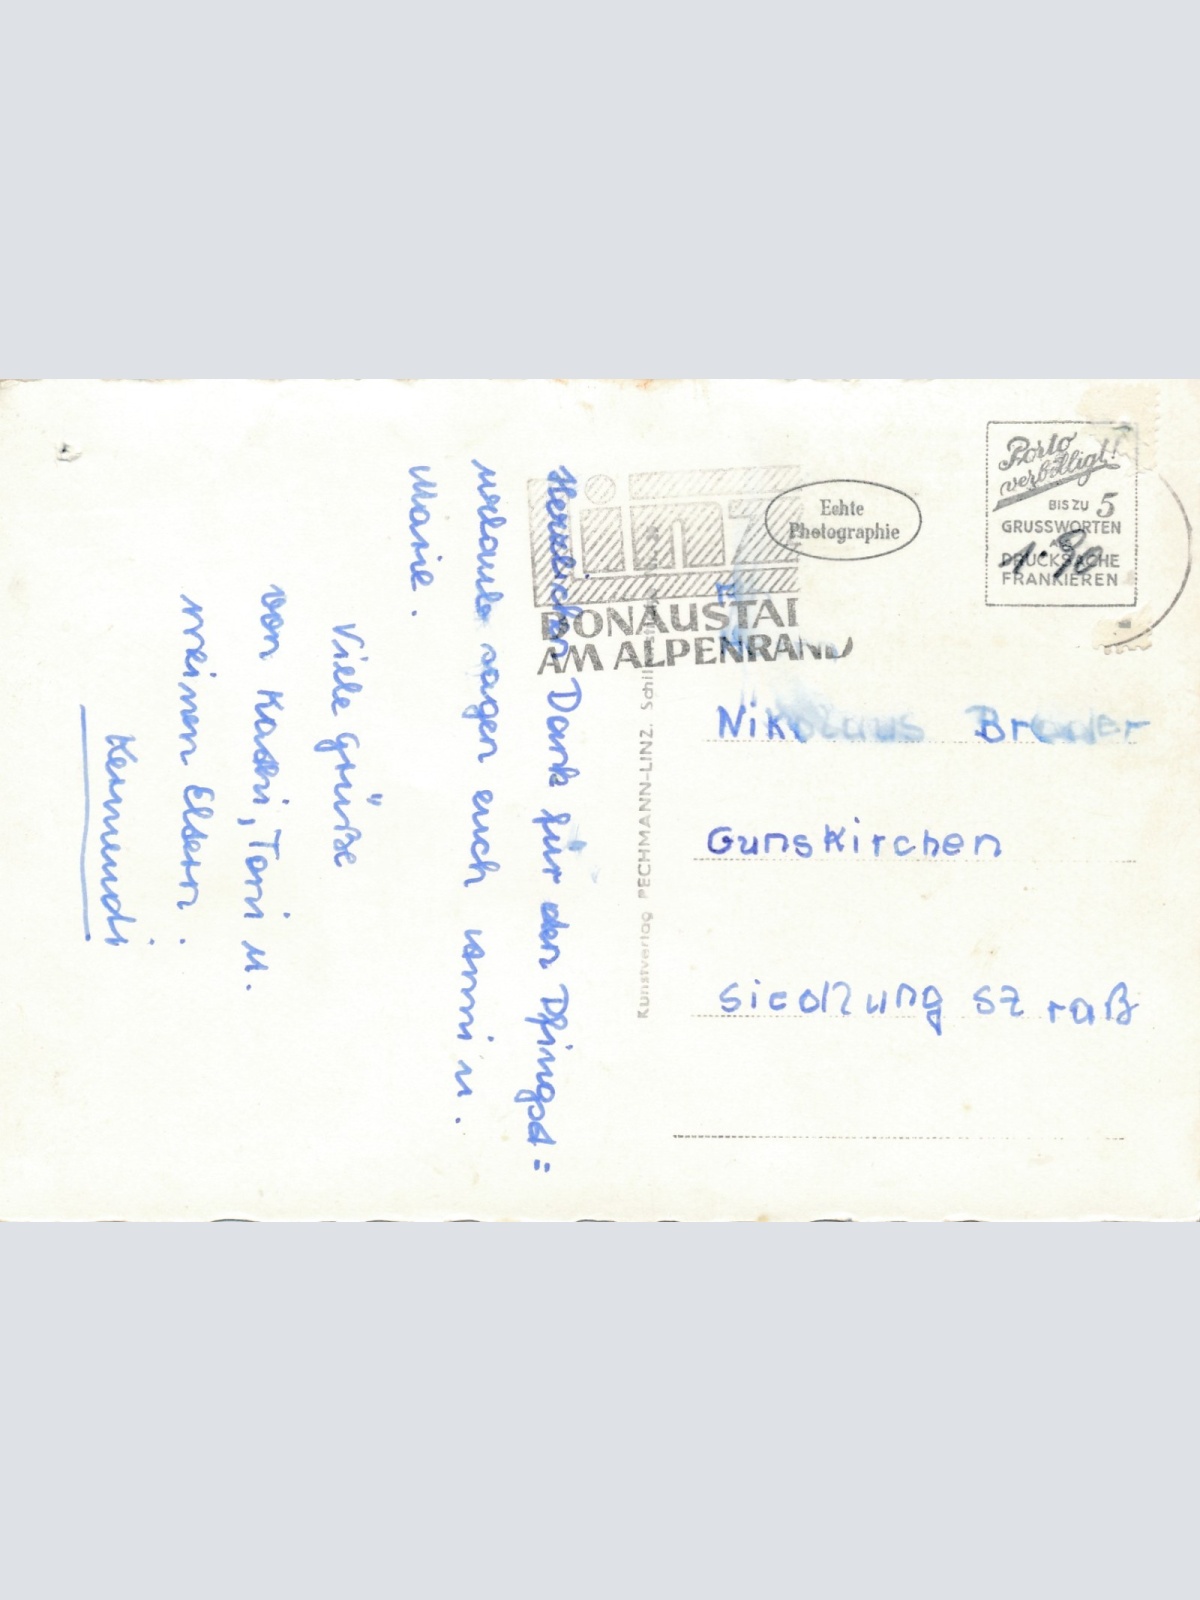 Herzlichen Dank für den Pfingst=
urlaub sagen euch
Marie.
Viele Grüße
von Kathi, Toni u.
meinen Eltern.
Linz
DONAUSTADT
AM ALPENRAND
Echte
Photographie
Porto
verbilligt!
BIS ZU 5
GRUSSWORTEN
ALS
DRUCKSACHE
FRANKIEREN
1·90
Kunstverlag PECHMANN-LINZ.
Nikolaus
Gunskirchen
Siedlung Straß